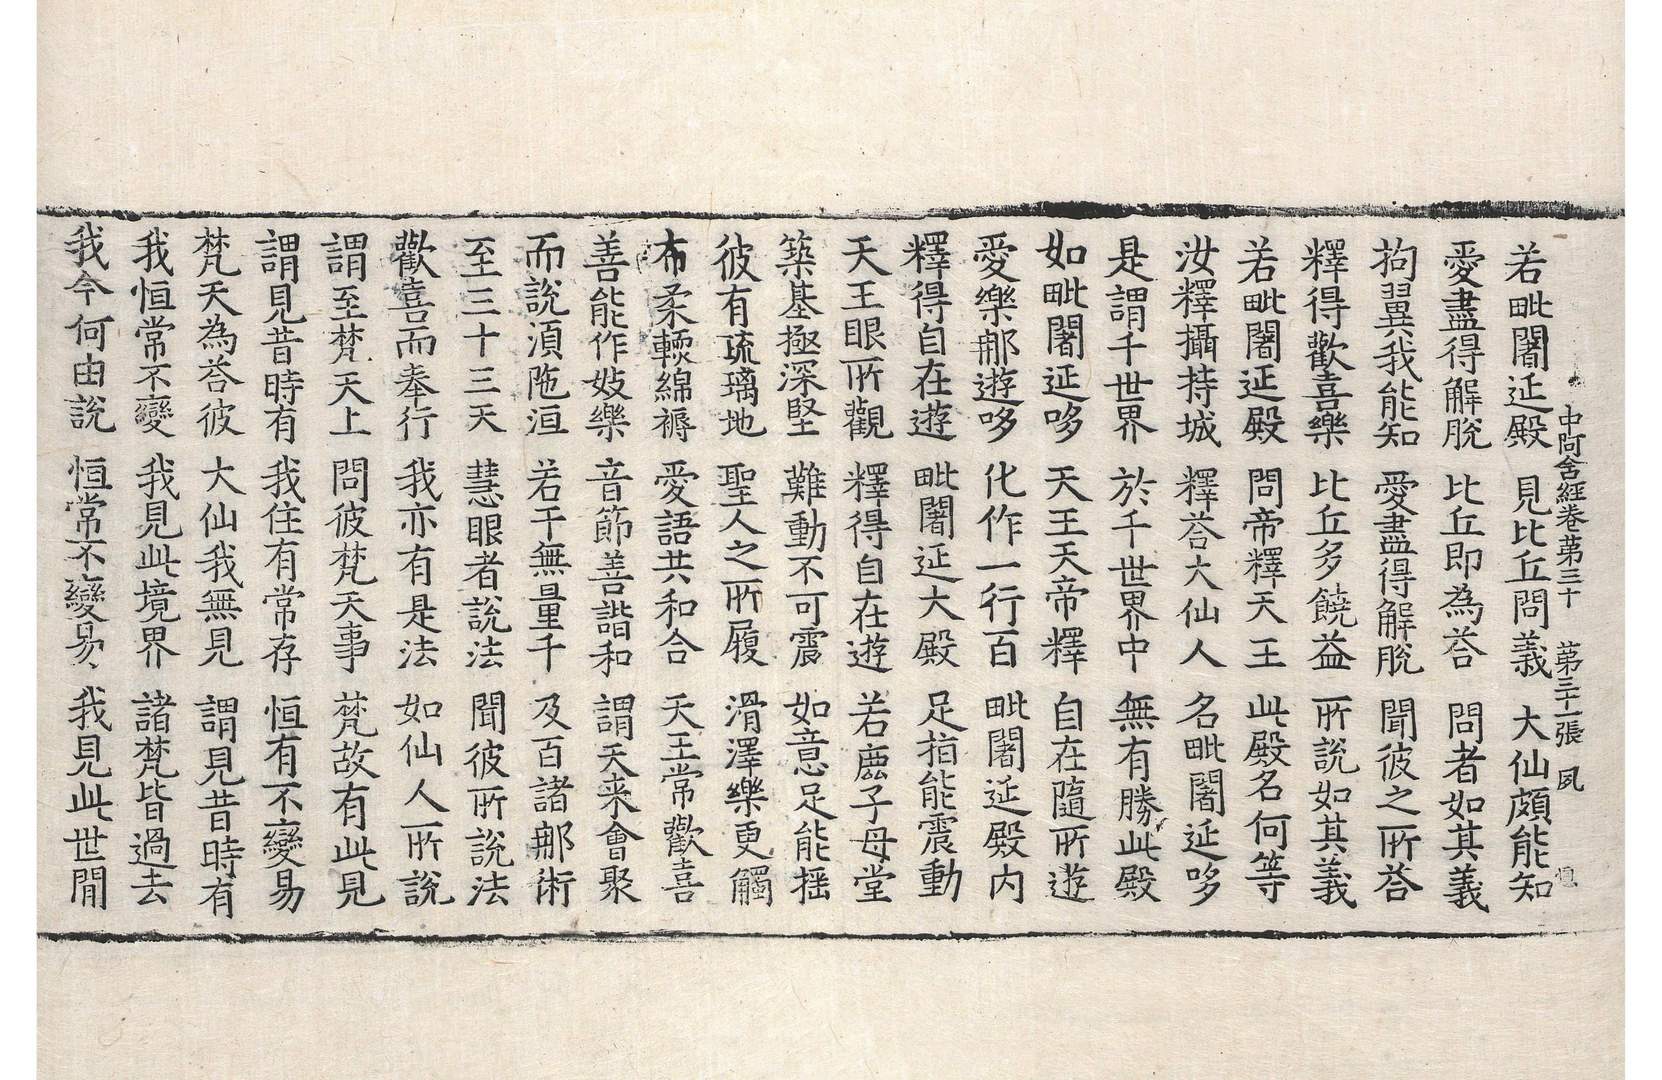 中阿含經卷第三十　第三十二張　夙
若毗闍延殿　見比丘問義　大仙頗能知
愛盡得解脫　比丘即為荅　問者如其義
拘翼我能知　愛盡得解脫　聞彼之所荅
釋得歡喜樂　比丘多饒益　所說如其義
若毗闍延殿　問帝釋天王　此殿名何等
汝釋攝持城　釋荅大仙人　名毗闍延哆
是謂千世界　於千世界中　無有勝此殿
如毗闍延哆　天王天帝釋　自在隨所遊
愛樂那遊哆　化作一行百　毗闍延殿內
釋得自在遊　毗闍延大殿　足指能震動
天王眼所觀　釋得自在遊　若鹿子母堂
築基極深堅　難動不可震　如意足能搖
彼有琉璃地　聖人之所履　滑澤樂更觸
布柔軟綿褥　愛語共和合　天王常歡喜
善能作妓樂　音節善諧和　謂天来會聚
而說湏陁洹　若干無量千　及百諸那術
至三十三天　慧眼者說法　聞彼所說法
歡喜而奉行　我亦有是法　如仙人所說
謂至梵天上　問彼梵天事　梵故有此見
謂見昔時有　我住有常存　恒有不變易
梵天為荅彼　大仙我無見　謂見昔時有
我恒常不變　我見此境界　諸梵皆過去
我今何由說　恒常不變易　我見此世間